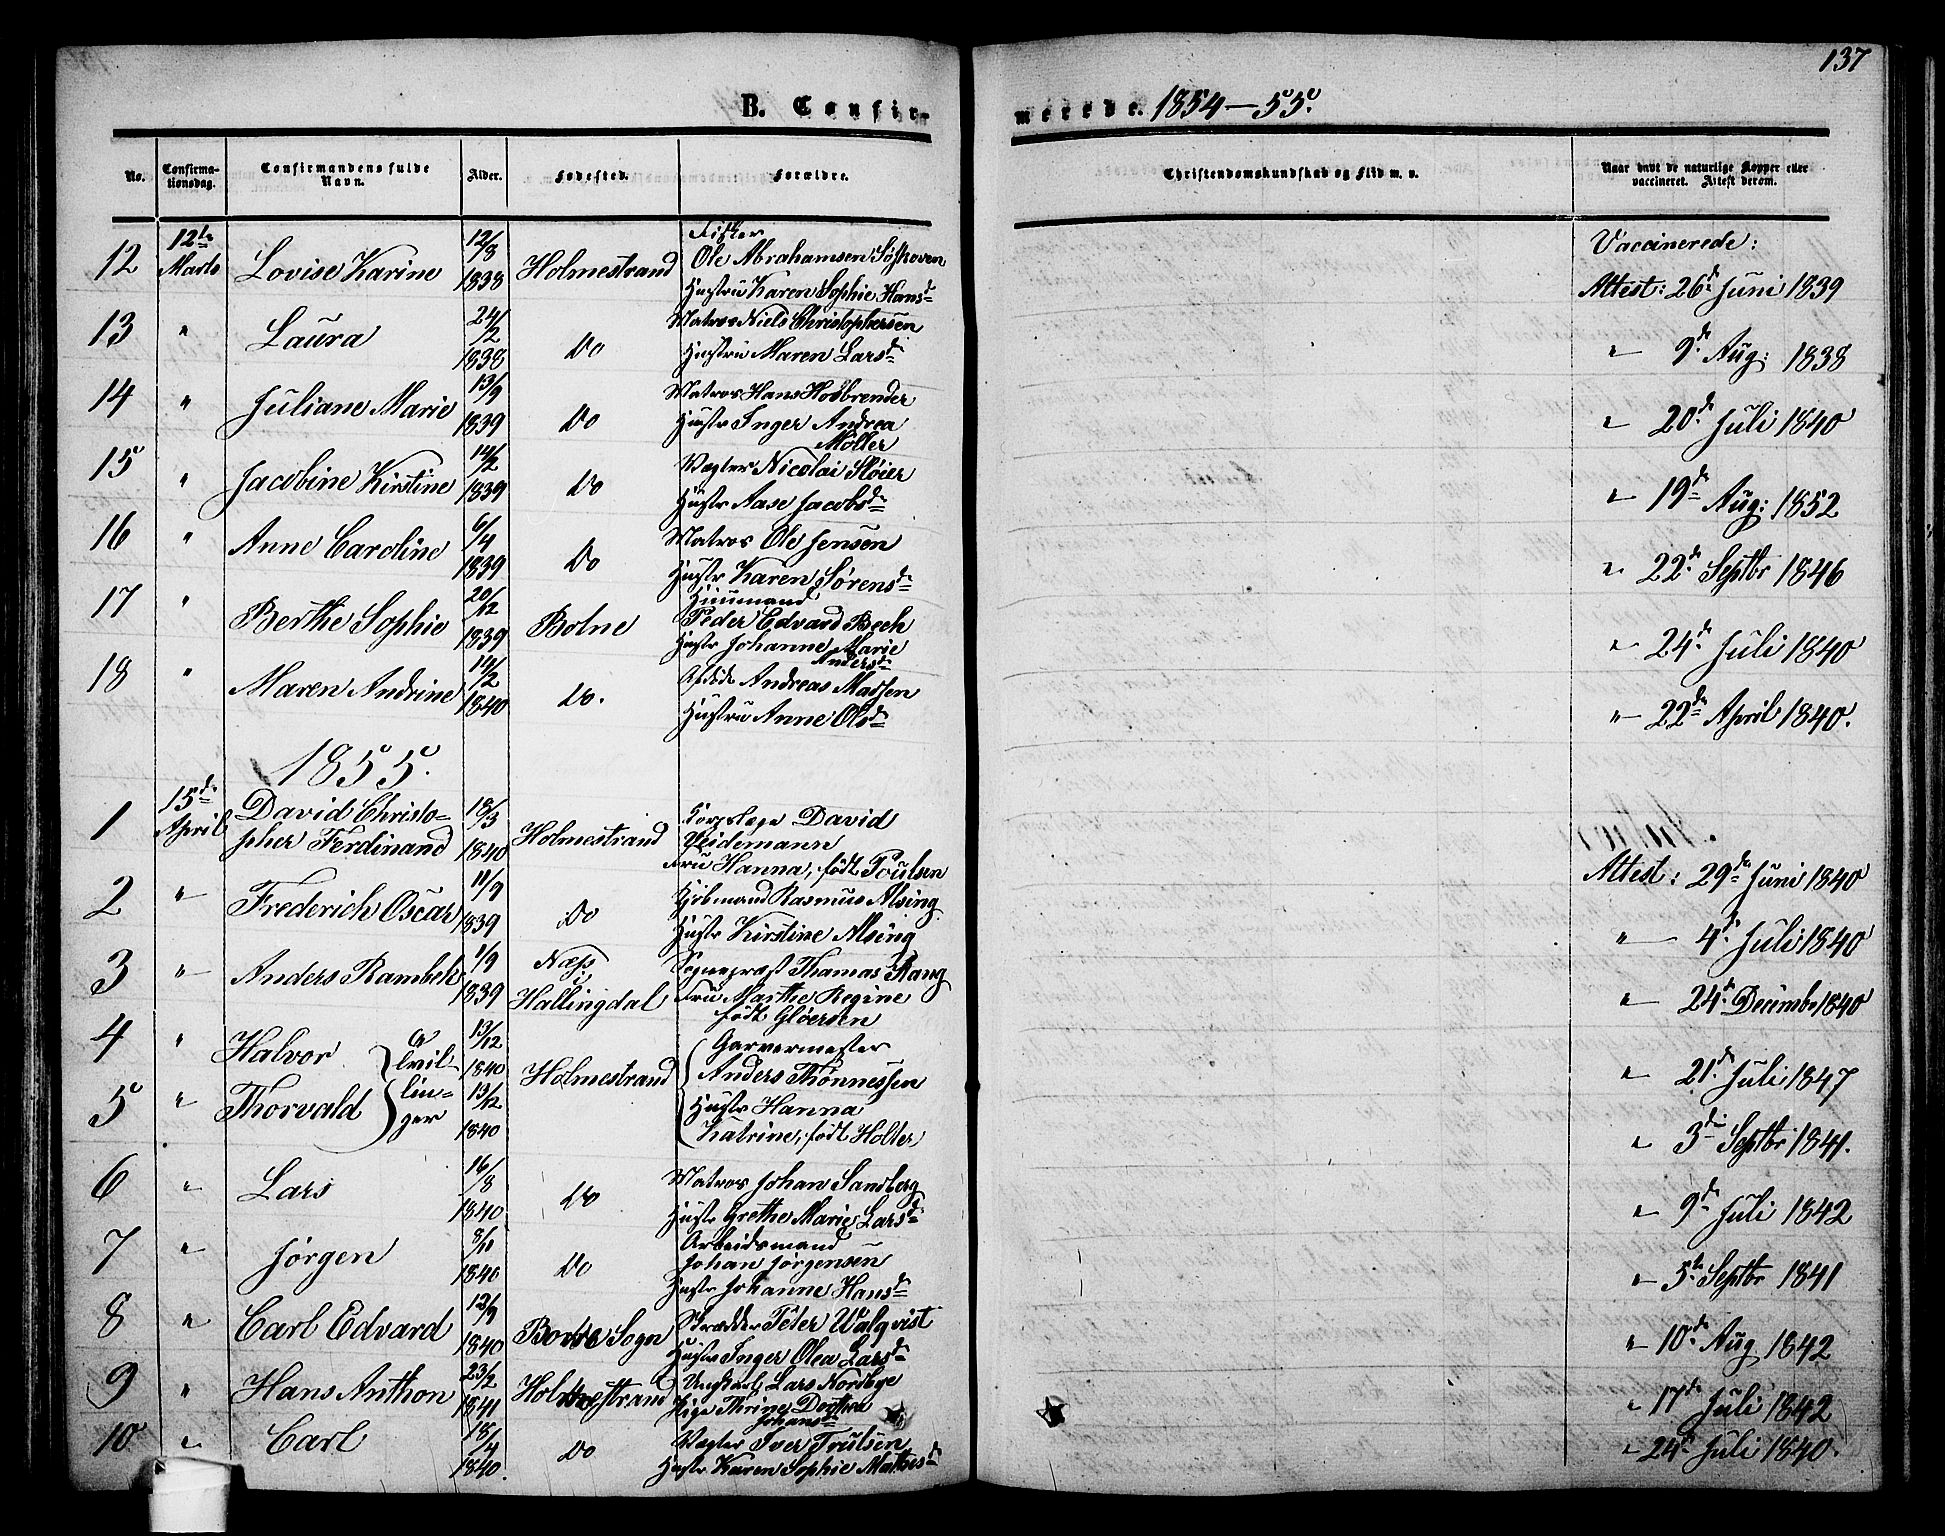 137
B. Confirmerede. 1854-55.
No. Confirmationsdag. Confirmandens fulde Navn. Alder. Fødested. Forældre. Christendomskundskab og Flid m. v. Naar havt de naturlige Kopper eller vaccineret. Attest derom.
12 12te Marts Lovise Karine 12/8 1838 Holmestrand Fisker Ole Abrahamsen Hustru Karen Sophie Hansd. Vaccinerede: Attest: 26de Juni 1839
13 " Laura 24/2 1838 Do Matros Niels Christophersen Hustru Maren Larsd. " 9de Aug: 1838
14 " Juliane Marie 13/9 1839 Do Matros Hans Hosbrender Hustr Inger Andrea Møller " 20de Juli 1840
15 " Jacobine Kirstine 14/2 1839 Do Vægter Nicolai Hustr Aase Jacobsd. " 19de Aug: 1852
16 " Anne Caroline 6/4 1839 Do Matros Ole Jensen Hustr Karen Sørensd. " 22de Septbr 1846
17 " Berthe Sophie 20/12 1839 Botne Huusmand Peder Edvard Bech Hustr Johanne Marie Andersd. " 24de Juli 1840
18 " Maren Andrine 14/2 1840 Do. Afdøde Andreas Madsen Hustru Anne Olsd. " 22de April 1840.
1855.
1 15de April David Christopher Ferdinand 18/3 1840 Holmestrand Korpslæge David Veidemann Fru Hanna, født Poulsen Attest: 29de Juni 1840
2 " Frederich Oscar 11/9 1839 Do Rasmus Alsing Hustr Kirstine Alsing " 4de Juli 1840
3 " Anders Rambek 1/9 1839 Næss i Hallingdal Sognepræst Thomas Rang Fru Marthe Regine født Gløersen " 24de Decimbr 1840
4 " Halvor Tvillinger 13/12 1840 Holmestrand Garvermester Anders Thønnessen Hustr Hanna Katrine, født Holter " 21de Juli 1847
5 " Thorvald 13/12 1840 " 3die Septbr 1841.
6 " Lars 16/8 1840 Do Matros Johan Sandberg Hustr Grethe Marie Larsd. " 9de Juli 1842
7 " Jørgen 8/11 1840 Do Arbeidsmand Johan Jørgensen Hustr Johanne Hansd. " 5te Septbr 1841
8 " Carl Edvard 12/9 1840 Botne Sogn Skrædder Peter Walqvist Hustr Inger Olea Larsd. " 10de Aug 1842
9 " Hans Anthon 23/2 1841 Holmestrand Ungkarl Lars Nordbye Pige Thrine Dorthea Johansd. " 17de Juli 1842
10 " Carl 18/4 1840. Do Vægter Iver Trulsen Hustr Karen Sophie Mathisd. " 24de Juli 1840.